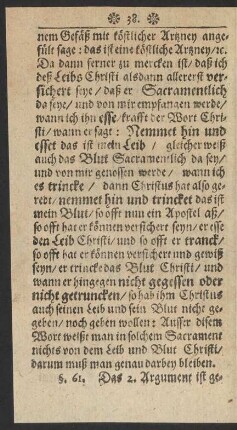 38.
nem Gefäß mit köstlicher Artzney ange-
fült sage: das ist eine köstliche Artzney/ꝛc.
Da dann ferner zu mercken ist/ daß ich
deß Leibs Christi alsdann allererst ver-
sichert seye / daß er Sacramentlich
da seye/ und von mir empfangen werde/
wann ich ihn esse/ krafft der Wort Chri-
sti/ wann er sagt: Nemmet hin und
esset das ist mein Leib / gleicher weiß
auch das Blut Sacramentlich da sey/
und von mir genossen werde/ wann ich
es trincke / dann Christus hat also ge-
redt/ nemmet hin und trincket das ist
mein Blut/ so offt nun ein Apostel aß/
so offt hat er können versichert seyn/ er esse
den Leib Christi/ und so offt er tranck/
so offt hat er können versichert und gewiß
seyn/ er trincke das Blut Christi/ und
wann er hingegen nicht gegessen oder
nicht getruncken/ so hab ihm Christus
auch seinen Leib und sein Blut nicht ge-
geben/ noch geben wollen: Ausser disem
Wort weißt man in solchem Sacrament
nichts von dem Leib und Blut Christi/
darum muß man genau darbey bleiben.
§. 61. Das 2. Argument ist ge-